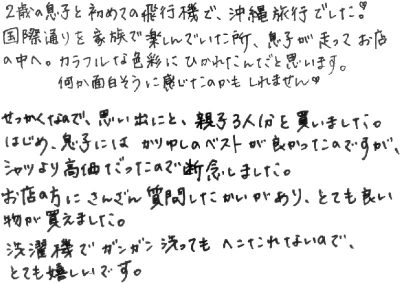 2歳の息子と初めての飛行機で、沖縄旅行でした!
国際通りを家族で楽しんでいた所、息子が走ってお店
の中へ。カラフルな色彩にひかれたんだと思います。
何か面白そうに感じたのかもしれません♡
せっかくなので、思い出にと、親子3人分を買いました。
はじめ、息子には かりゆしのベストが良かったのですが、
シャツより高価だったので断念しました。
お店の方に さんざん 質問したかいがあり、とても良い
物が買えました。
洗濯機でガンガン洗っても へこたれないので、
とても嬉しいです。